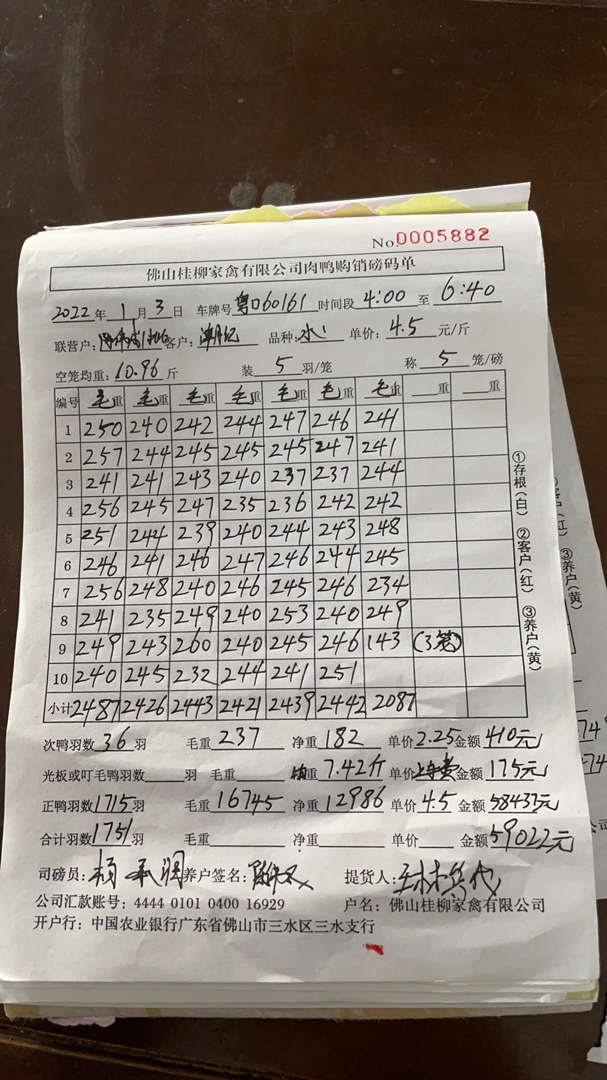 No.0005882
佛山桂柳家禽有限公司肉鸭购销磅码单
2022年 1月 3日 车牌号 粤口60161 时间段 4:00 至 6:40
联营户: 客户: 品种: 水 单价: 4.5 元/斤
空笼均重: 10.96 斤 装 5 羽/笼 称 5 笼/磅
编号 毛重 毛重 毛重 毛重 毛重 毛重 毛重 重 重
1 250 240 242 244 247 246 241
2 257 244 245 245 245 247 241
3 241 241 243 240 237 237 244
4 256 245 247 235 236 242 242
5 251 244 239 240 244 243 248
6 246 241 246 247 246 244 245
7 256 248 240 246 245 246 234
8 241 235 249 240 253 240 249
9 249 243 260 240 245 246 143 (3笼)
10 240 245 232 244 241 251
小计 2487 2426 2443 2421 2439 2442 2087
①存根(白) ②客户(红) ③养户(黄)
次鸭羽数 36 羽 毛重 237 净重 182 单价 2.25 金额 410元
光板或叮毛鸭羽数 羽 毛重 均重 7.42斤 单价 上车费 金额 175元
正鸭羽数 1715 羽 毛重 16745 净重 12986 单价 4.5 金额 58437元
合计羽数 1751 羽 毛重 净重 单价 金额 59022元
司磅员: 养户签名: 提货人:
公司汇款账号: 4444 0101 0400 16929 户名: 佛山桂柳家禽有限公司
开户行: 中国农业银行广东省佛山市三水区三水支行
③养户(黄)